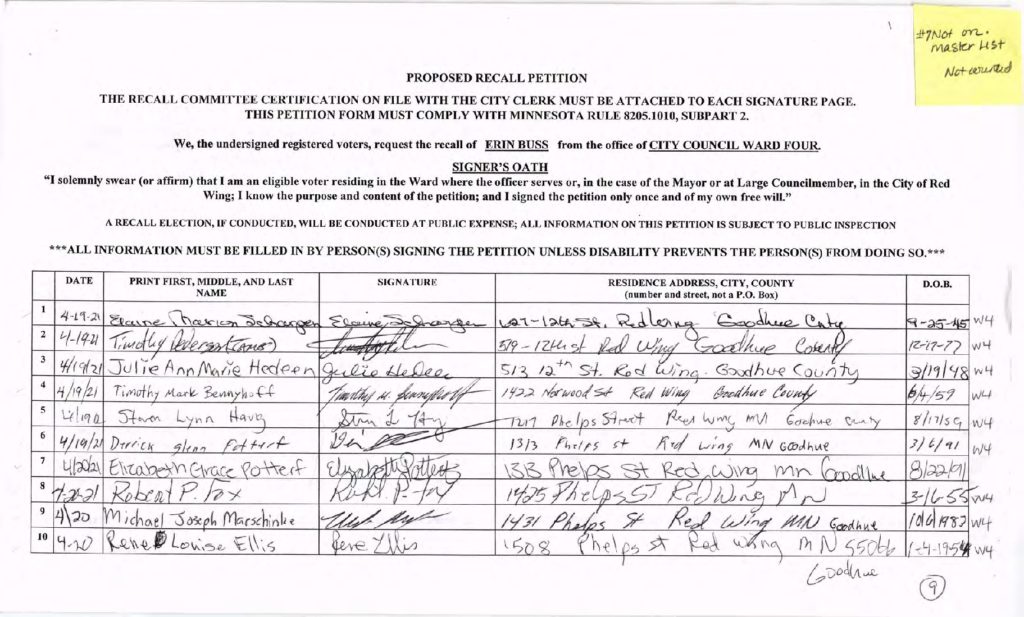 #7 Not on.
master List
Not counted
PROPOSED RECALL PETITION
THE RECALL COMMITTEE CERTIFICATION ON FILE WITH THE CITY CLERK MUST BE ATTACHED TO EACH SIGNATURE PAGE.
THIS PETITION FORM MUST COMPLY WITH MINNESOTA RULE 8205.1010, SUBPART 2.
We, the undersigned registered voters, request the recall of ERIN BUSS from the office of CITY COUNCIL WARD FOUR.
SIGNER'S OATH
"I solemnly swear (or affirm) that I am an eligible voter residing in the Ward where the officer serves or, in the case of the Mayor or at Large Councilmember, in the City of Red
Wing; I know the purpose and content of the petition; and I signed the petition only once and of my own free will."
A RECALL ELECTION, IF CONDUCTED, WILL BE CONDUCTED AT PUBLIC EXPENSE; ALL INFORMATION ON THIS PETITION IS SUBJECT TO PUBLIC INSPECTION
***ALL INFORMATION MUST BE FILLED IN BY PERSON(S) SIGNING THE PETITION UNLESS DISABILITY PREVENTS THE PERSON(S) FROM DOING SO.***
DATE PRINT FIRST, MIDDLE, AND LAST NAME SIGNATURE RESIDENCE ADDRESS, CITY, COUNTY (number and street, not a P.O. Box) D.O.B.
1 4-19-21 Elaine Marion Elaine 12th St. Red Wing Goodhue 9-25-45 W4
2 4-1921 Timothy 519-12th st Red Wing Goodhue County 12-17-77 W4
3 4/19/21 Julie Ann Marie Hedeen Julie Hedeen 513 12th St. Red Wing. Goodhue County 3/19/48 W4
4 4/19/21 Timothy Mark Bennyhoff Timothy M. Bennyhoff 1422 Norwood St Red Wing Goodhue County 6/4/59 W4
5 Steven Lynn Haug 1217 Phelps Street Red Wing MN 8/17/59 W4
6 4/19/21 Derrick glenn Potterf 1313 Phelps st Red wing MN Goodhue 3/6/91 W4
7 4/20/21 Elizabeth Grace Potterf Elizabeth Potterf 1313 Phelps St Red wing mn Goodhue 8/22/91
8 4-20-21 Robert P. Fox 1425 Phelps ST Red Wing MN 3-16-55 W4
9 4/20 Michael Joseph Marschinke 1431 Phelps St Red Wing MN Goodhue 10/6/1982 W4
10 4-20 Renee Louise Ellis Rene Ellis 1508 Phelps st Red wing MN 55066 1-4-1954 W4
Goodhue
9